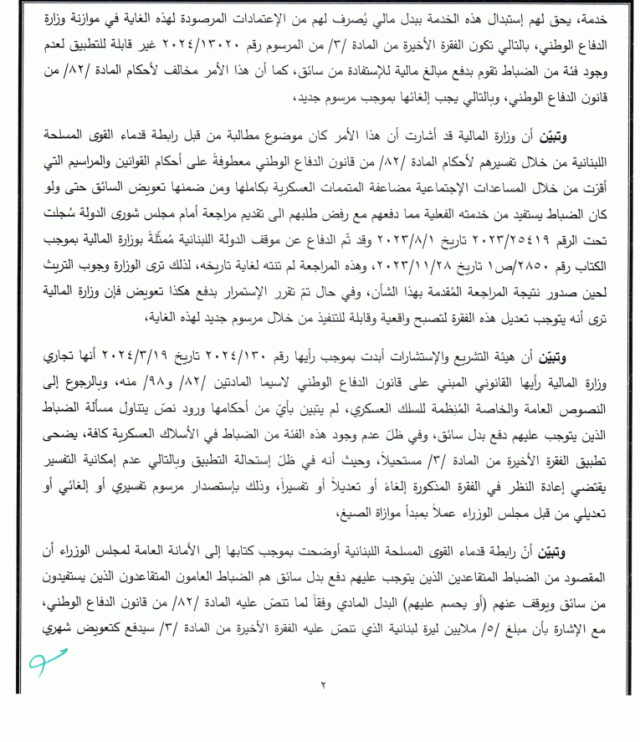 خدمة، يحق لهم إستبدال هذه الخدمة ببدل مالي يُصرف لهم من الإعتمادات المرصودة لهذه الغاية في موازنة وزارة
الدفاع الوطني، بالتالي تكون الفقرة الأخيرة من المادة /٣/ من المرسوم رقم ٢٠٢٤/١٣٠٢٠ غير قابلة للتطبيق لعدم
وجود فئة من الضباط تقوم بدفع مبالغ مالية للإستفادة من سائق، كما أن هذا الأمر مخالف لأحكام المادة /٨٢/ من
قانون الدفاع الوطني، وبالتالي يجب إلغائها بموجب مرسوم جديد،
وتبيّن أن وزارة المالية قد أشارت أن هذا الأمر كان موضوع مطالبة من قبل رابطة قدماء القوى المسلحة
اللبنانية من خلال تفسيرهم لأحكام المادة /٨٢/ من قانون الدفاع الوطني معطوفةً على أحكام القوانين والمراسيم التي
أقرّت من خلال المساعدات الإجتماعية مضاعفة المتممات العسكرية بكاملها ومن ضمنها تعويض السائق حتى ولو
كان الضباط يستفيد من خدمته الفعلية مما دفعهم مع رفض طلبهم الى تقديم مراجعة أمام مجلس شورى الدولة سُجلت
تحت الرقم ٢٠٢٣/٢٥٤١٩ تاريخ ٢٠٢٣/٨/١ وقد تمّ الدفاع عن موقف الدولة اللبنانية مُمثّلةً بوزارة المالية بموجب
الكتاب رقم ٢٨٥٠/ص١ تاريخ ٢٠٢٣/١١/٢٨، وهذه المراجعة لم تنته لغاية تاريخه، لذلك ترى الوزارة وجوب التريث
لحين صدور نتيجة المراجعة المُقدمة بهذا الشأن، وفي حال تمّ تقرر الإستمرار بدفع هكذا تعويض فإن وزارة المالية
ترى أنه يتوجب تعديل هذه الفقرة لتصبح واقعية وقابلة للتتنفيذ من خلال مرسوم جديد لهذه الغاية،
وتبيّن أن هيئة التشريع والإستشارات أبدت بموجب رأيها رقم ٢٠٢٤/١٣٠ تاريخ ٢٠٢٤/٣/١٩ أنها تجاري
وزارة المالية رأيها القانوني المبني على قانون الدفاع الوطني لاسيما المادتين /٨٢/ و/٩٨/ منه، وبالرجوع إلى
النصوص العامة والخاصة المُنظمة للسلك العسكري، لم يتبين بأيّ من أحكامها ورود نصّ يتناول مسألة الضباط
الذين يتوجب عليهم دفع بدل سائق، وفي ظلّ عدم وجود هذه الفئة من الضباط في الأسلاك العسكرية كافة، يضحى
تطبيق الفقرة الأخيرة من المادة /٣/ مستحيلاً، وحيث أنه في ظلّ إستحالة التطبيق وبالتالي عدم إمكانية التفسير
يقتضي إعادة النظر في الفقرة المذكورة إلغاءً أو تعديلاً أو تفسيراً، وذلك بإستصدار مرسوم تفسيري أو إلغائي أو
تعديلي من قبل مجلس الوزراء عملاً بمبدأ موازاة الصيغ،
وتبيّن أنّ رابطة قدماء القوى المسلحة اللبنانية أوضحت بموجب كتابها إلى الأمانة العامة لمجلس الوزراء أن
المقصود من الضباط المتقاعدين الذين يتوجب عليهم دفع بدل سائق هم الضباط العامون المتقاعدون الذين يستفيدون
من سائق ويوقف عنهم (أو يحسم عليهم) البدل المادي وفقاً لما تنصّ عليه المادة /٨٢/ من قانون الدفاع الوطني،
مع الإشارة بأن مبلغ /٥/ ملايين ليرة لبنانية الذي تنصّ عليه الفقرة الأخيرة من المادة /٣/ سيدفع كتعويض شهري
٢